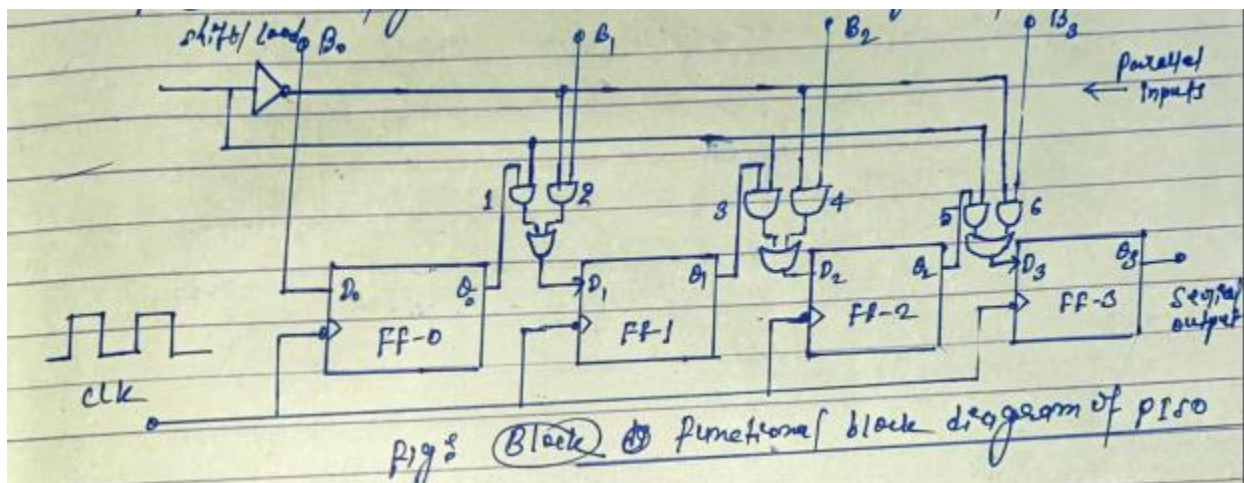 shift/Load B₀ B₁ B₂ B₃
Parallel
Inputs
1 2 3 4 5 6
D₀ Q₀ D₁ Q₁ D₂ Q₂ D₃ Q₃
FF-0 FF-1 FF-2 FF-3
Serial
output
Clk
Fig: Block functional block diagram of PISO